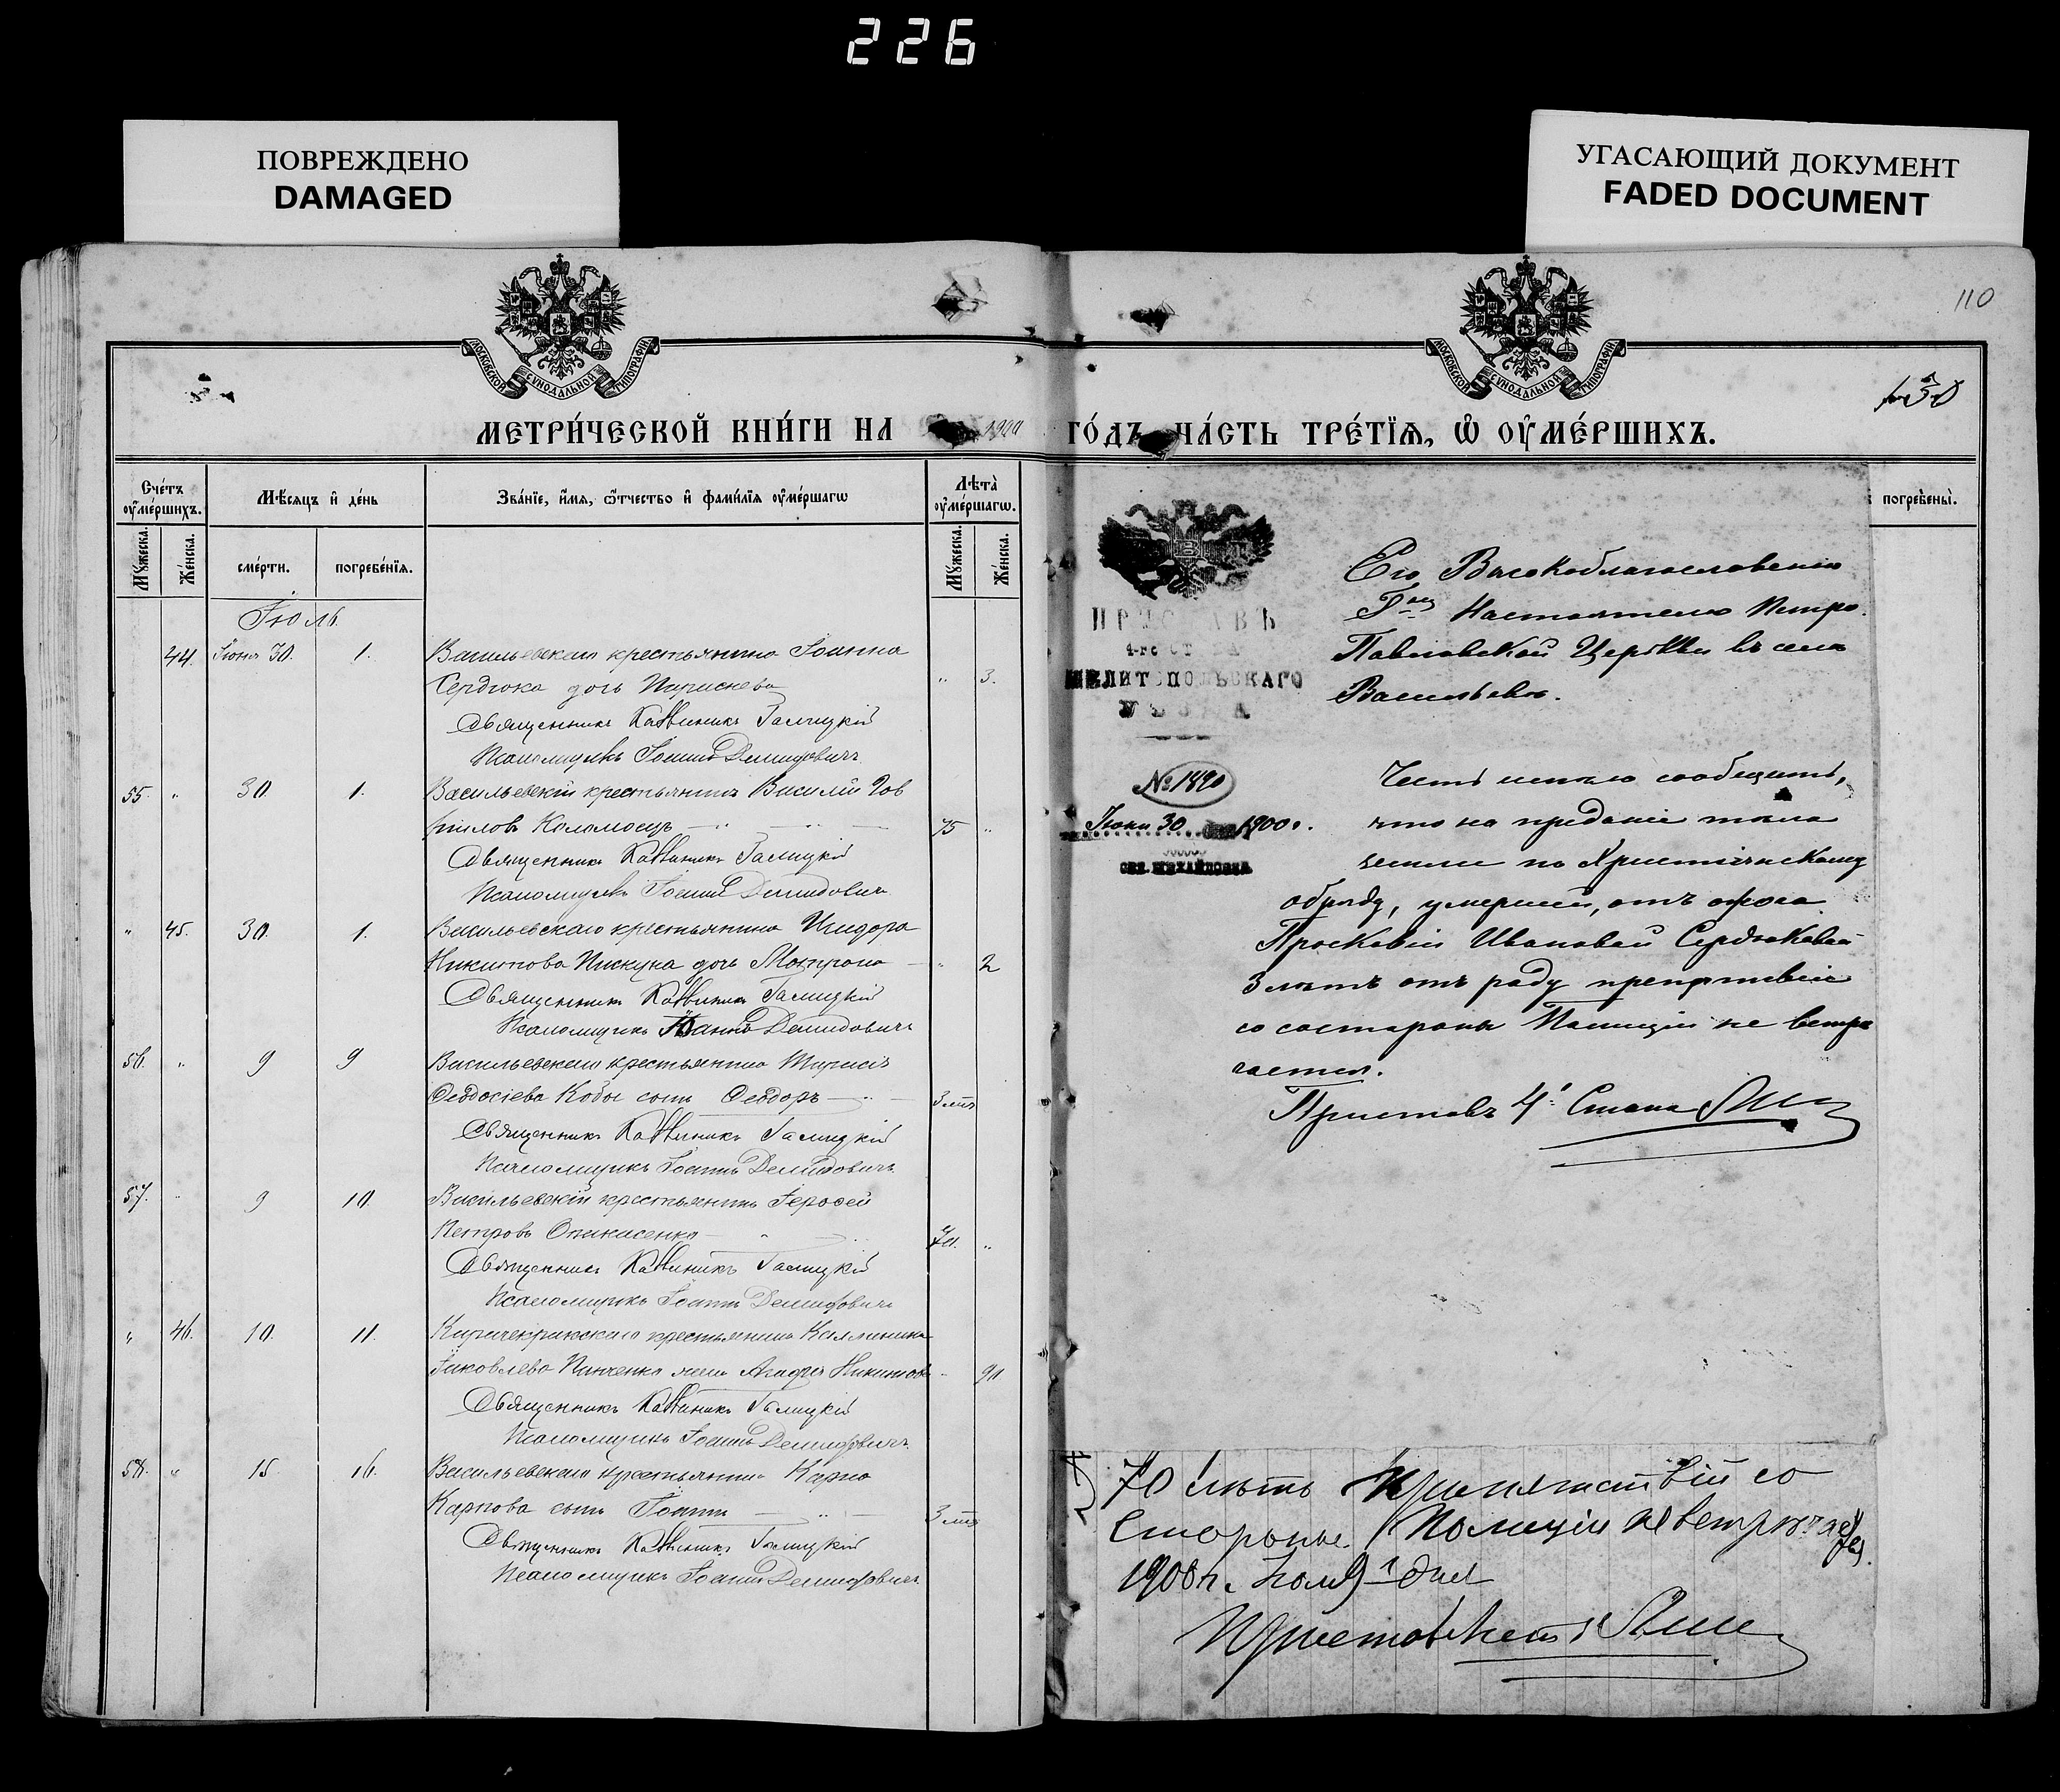 226
ПОВРЕЖДЕНО
DAMAGED
УГАСАЮЩИЙ ДОКУМЕНТ
FADED DOCUMENT
110
МОСКОВСКОЙ СУНОДАЛЬНОЙ ТИПОГРАФИИ
МЕТРИ́ЧЕСКОЙ КНИ́ГИ НА 1900
Сче́тъ ᲂу҆ме́ршихъ.
Мѣ́сяцъ и҆ де́нь
Зва́нїе, и҆́мя, ѻ҆́тчество и҆ фами́лїя ᲂу҆ме́ршагѡ
Лѣта̀ ᲂу҆ме́ршагѡ.
Мꙋ́жеска.
Же́нска.
сме́рти.
погребе́нїя.
Мꙋ́жеска.
Же́нска.
Іюль
44. Іюня 30. 1. Васильевскаго крестьянина Іоанна
Сердюка дочь Парискева " 3.
Священникъ Каллиникъ Галицкій
Псаломщикъ Іоаннъ Демидовичъ
55. " 30 1. Васильевскій крестьянинъ Василій
Коломоецъ 75 "
Священникъ Каллиникъ Галицкій
Псаломщикъ Іоаннъ Демидовичъ
" 45. 30. 1. Васильевскаго крестьянина Исидора
Никитова Пискуна дочь Матрона " 2
Священникъ Каллиникъ Галицкій
Псаломщикъ Іоаннъ Демидовичъ
56. " 9 9 Васильевскаго крестьянина
Ѳеодосіева сынъ Ѳеодоръ 3 лѣтъ
Священникъ Каллиникъ Галицкій
Псаломщикъ Іоаннъ Демидовичъ
57. " 9 10. Васильевскій крестьянинъ Іероѳей
Петровъ 70. "
Священникъ Каллиникъ Галицкій
Псаломщикъ Іоаннъ Демидовичъ
" 46. 10. 11. крестьянина Каллиника
Іаковлева Панченка жена Агафія Никитова " 90
Священникъ Каллиникъ Галицкій
Псаломщикъ Іоаннъ Демидовичъ
58. " 15. 16. Васильевскаго крестьянина Карпа
Карпова сынъ Іоаннъ 3
Священникъ Каллиникъ Галицкій
Псаломщикъ Іоаннъ Демидовичъ
МОСКОВСКОЙ СУНОДАЛЬНОЙ ТИПОГРАФИИ
ГО́ДЪ ЧА́СТЬ ТРЕ́ТЇѦ, Ѡ҆ ОУ҆МЕ́РШИХЪ.
погребены̀.
ПРИСТАВЪ
4-го СТАНА
МЕЛИТОПОЛЬСКАГО
УѢЗДА
№ 1890
Іюня 30 1900 г.
СЕЛ. МИХАЙЛОВКА
Его Высокоблагословению
Г-ну Настоятелю Петро
Павловской Церкви въ селѣ
Васильевкѣ.
Честь имѣю сообщить,
что на преданіе тѣла
землѣ по Христіанскому
обряду, умершей, отъ ожога
Просковіи Ивановой Сердюковой
3 лѣтъ отъ роду препятствій
со стороны Полиціи не встрѣ
чается.
Приставъ 4 Стана
70 лѣтъ препятствій со
Стороны Полиціи не встрѣчается
1900 г. Іюля 9 дня
Приставъ